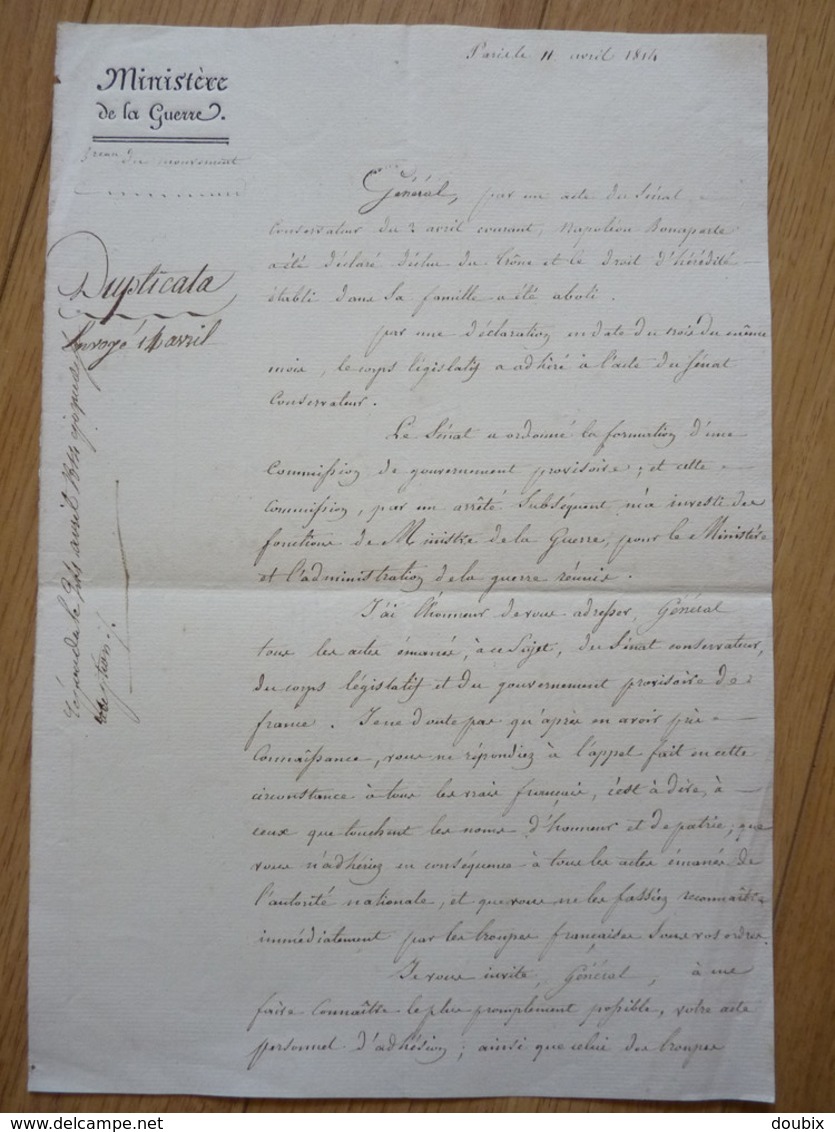 Paris le 11 avril 1814
Ministère
de la Guerre.
Bureau du mouvement
Duplicata
Envoyé 14 avril
Général, par un acte du Sénat
Conservateur du 2 avril courant, Napoléon Bonaparte
a été déclaré déchu du trône et le droit d'hérédité
établi dans sa famille a été aboli.
par une déclaration en date du trois du même
mois, le corps législatif a adhéré à l'acte du Sénat
Conservateur.
Le Sénat a ordonné la formation d'une
Commission de gouvernement provisoire; et cette
commission, par un arrêté subséquent, m'a investi des
fonctions de Ministre de la Guerre, pour le Ministère
et l'administration de la guerre réunis.
J'ai l'honneur de vous adresser, Général
tous les actes émanés, à ce Sujet, du Sénat conservateur,
du corps législatif et du gouvernement provisoire de
france. Je ne doute pas qu'après en avoir pris
Connaissance, vous ne répondiez à l'appel fait en cette
circonstance à tous les vrais français, c'est à dire, à
ceux que touchent les noms d'honneur et de patrie; que
vous n'adhériez en conséquence à tous les actes émanés de
l'autorité nationale, et que vous ne les fassiez reconnaître
immédiatement par les troupes françaises sous vos ordres.
Je vous invite, Général, à me
faire Connaître le plus promptement possible, votre acte
personnel d'adhésion; ainsi que celui des troupes
Répondu le avril 1814
doubix